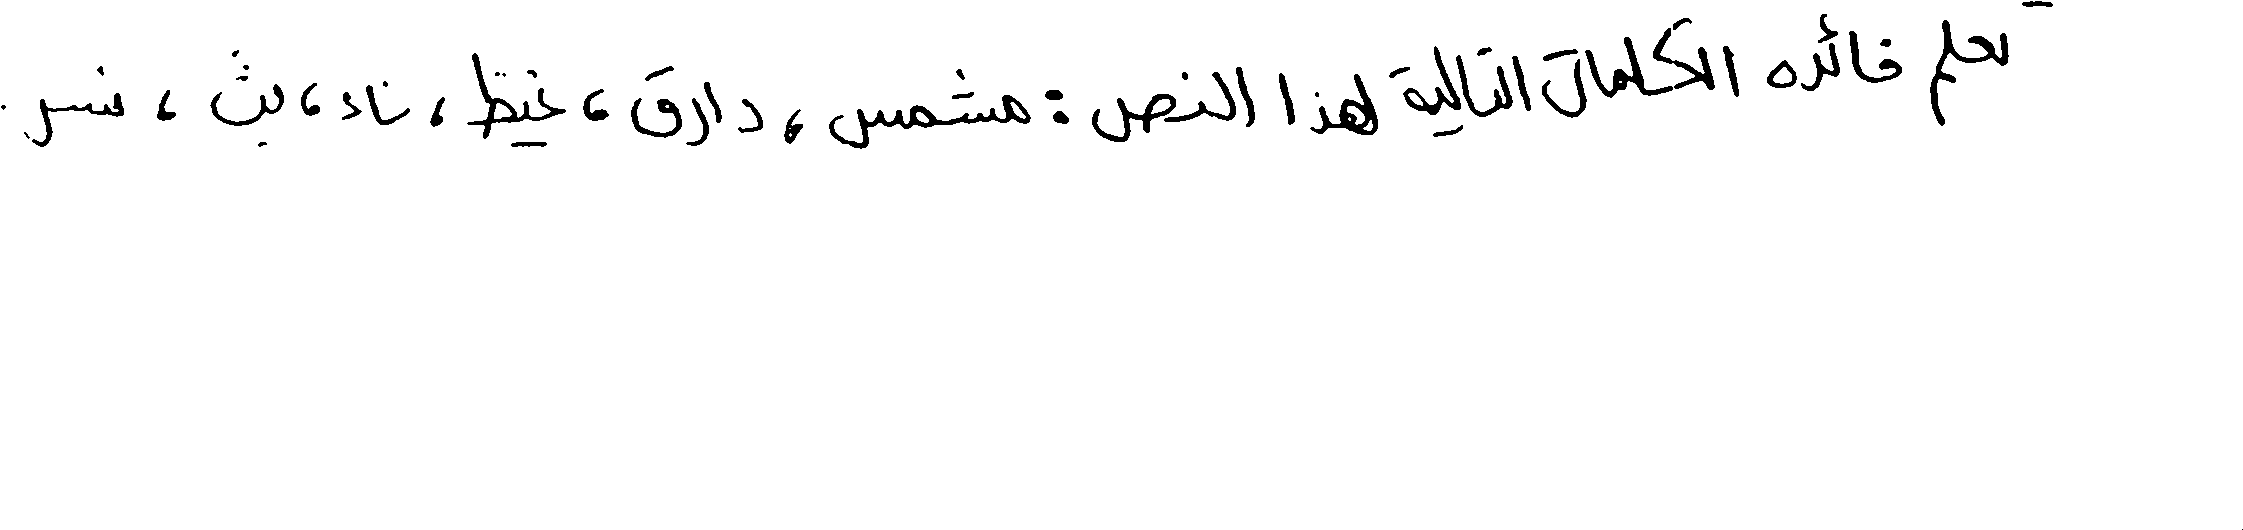 - لعلم فائده الكلمات التالية لهذا النص : مشمس ، دارق ، غيظ ، ناء ، بث ، نسر .